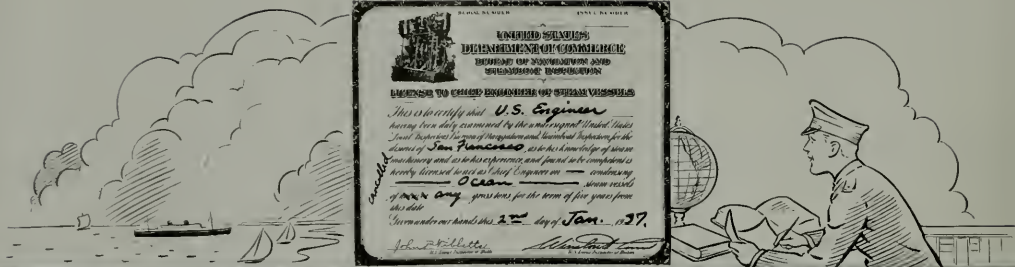 SERIAL NUMBER ISSUE NUMBER
UNITED STATES
DEPARTMENT OF COMMERCE
BUREAU OF NAVIGATION AND
STEAMBOAT INSPECTION
LICENSE TO CHIEF ENGINEER OF STEAM VESSELS
This is to certify that U.S. Engineer
having been duly examined by the undersigned United States
Local Inspectors Bureau of Navigation and Steamboat Inspection, for the
district of San Francisco, as to his knowledge of steam
machinery and as to his experience, and found to be competent is
hereby licensed to act as Chief Engineer on — condensing
Ocean steam vessels
of xxx any gross tons, for the term of five years from
this date.
Given under our hands this 2nd day of Jan. 1937.
cancelled
U.S. Local Inspector of
U.S. Local Inspector of